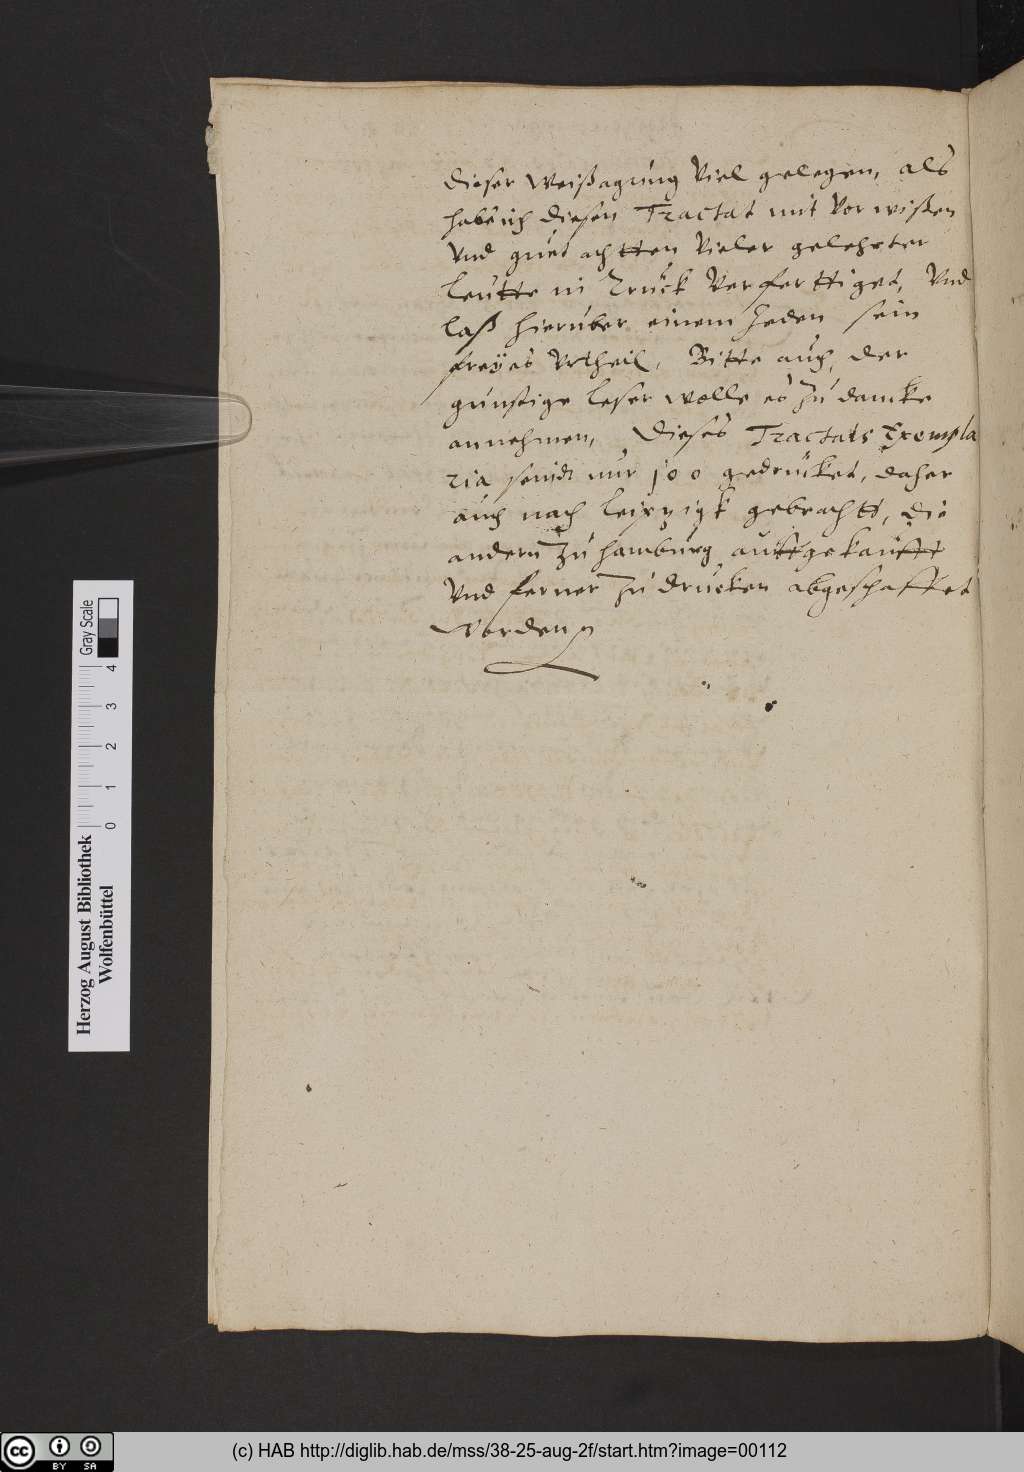 dieser Weißagung Viel gelegen, als
habe ich diesen Tractat mit Vorwißen
Vnd guet achtten Vieler gelehrter
leutte in Truck Verferttiget, Vnd
laß hieruber einem Jeden sein
freÿes Vrtheil, Bitte auch, der
gunstige leser wolle es Zu dancke
annehmen, Dieses Tractats Exempla
ria seindt nur 100 gedrucket, daher
auch nach leipzigk gebrachtt, die
andern Zu hamburg auffgekaufft
Vnd ferner Zu drucken abgeschaffet
Worden
Gray Scale
0 1 2 3 4
Herzog August Bibliothek
Wolfenbüttel
cc BY SA
(c) HAB http://diglib.hab.de/mss/38-25-aug-2f/start.htm?image=00112